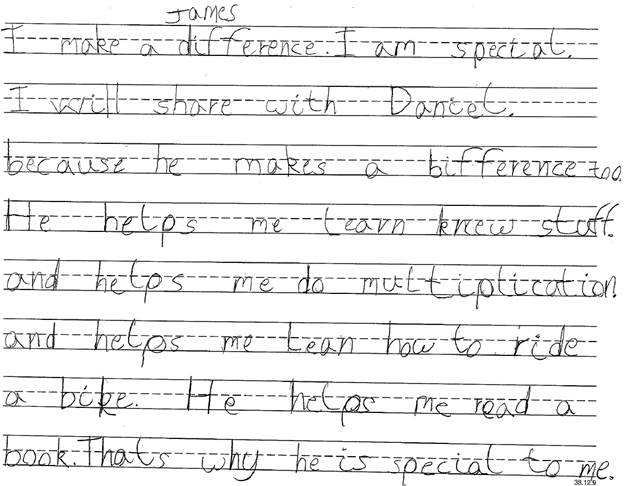 James
I make a difference. I am special.
I will share with Daniel.
because he makes a bifference too.
He helps me learn knew stuff.
and helps me do multiplication
and helps me lean how to ride
a bike. He helps me read a
book. Thats why he is special to me.
38.12.9